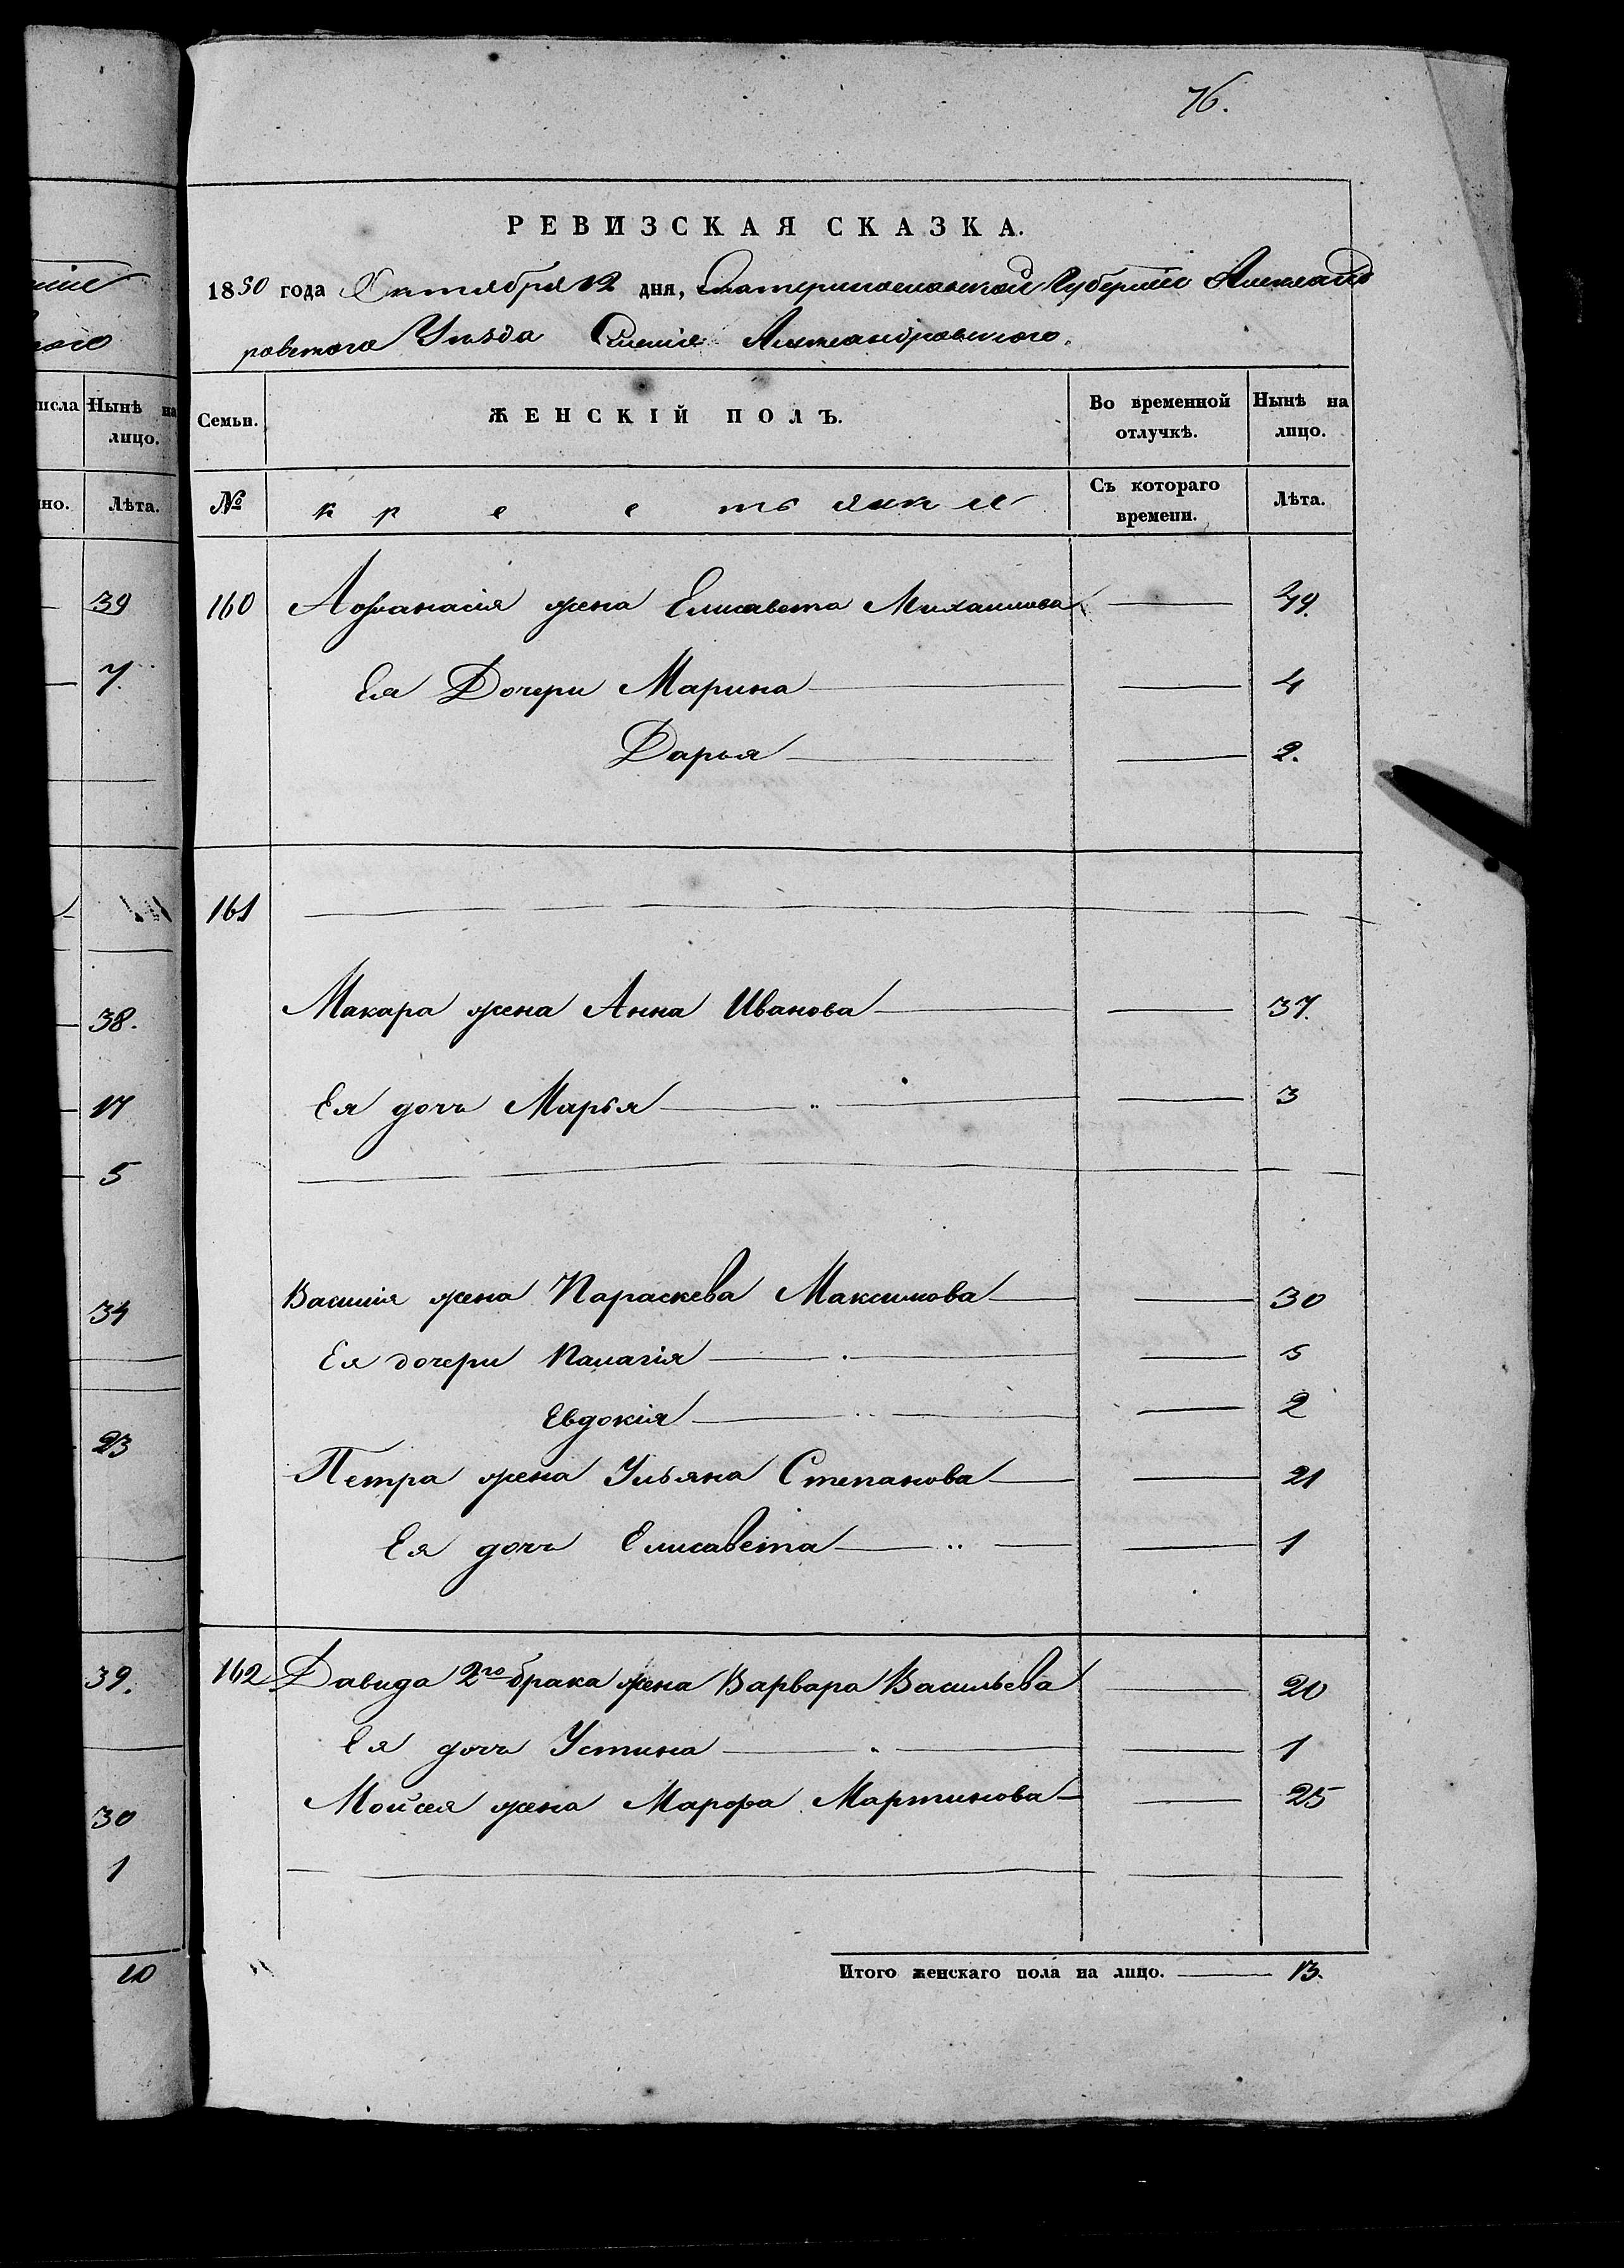 76.
РЕВИЗСКАЯ СКАЗКА.
1850 года Октября 12 дня, Екатеринославской Губернiи Александ
ровского Уѣзда Селенiя Александровского.
Нынѣ на
лицо.
Семьи.
ЖЕНСКIЙ ПОЛЪ.
Во временной
отлучкѣ.
Нынѣ на
лицо.
Лѣта.
№
крестьянки
Съ котораго
времени.
Лѣта.
39
160 Афанасiя жена Елисавета Михаилова
7.
Ея Дочери Марина 4
Дарья 2.
161
38.
Макара жена Анна Иванова 37.
17
Ея дочь Марья 3
5
34
Василiя жена Параскева Максимова 30
Ея дочери Палагiя 5
Евдокiя 2
23
Петра жена Ульяна Степанова 21
Ея дочь Елисавета 1
39.
162 Давида 2го брака жена Варвара Васильева 20
Ея дочь Устина 1
30
Мойсея жена Марфа Мартинова 25
1
10
Итого женскаго пола на лицо. 13.